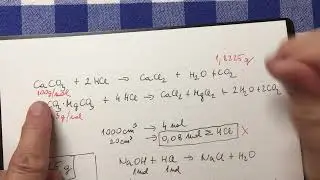 1,2225g
CaCO₃ + 2HCl → CaCl₂ + H₂O + CO₂
100g/mol
CO₃·MgCO₃ + 4HCl → CaCl₂ + MgCl₂ + 2H₂O + 2CO₂
g/mol
1000cm³ → 4 mol
20cm³ → 0,08 mol HCl X
NaOH + HCl → NaCl + H₂O
1mol 1mol
5g